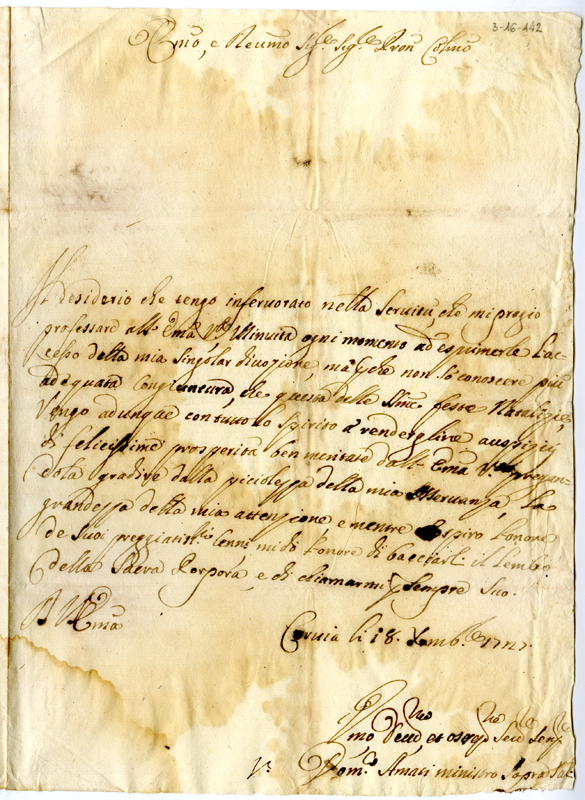 3-16-142
Emo, e Reumo Sig.e Sig.e Pron Colmo
Il desiderio che tengo infervorato nella Servitù, che mi pregio
professare all' Ema Vra M'invita ogni momento ad esprimerle L'ac-
ceso della mia Singolar divozione, ma che non sò conoscere più
adequata Congiuntura, che questa delle SSme feste Natalizie
Vengo adunque con tutto lo spirito à rendergline auspizij
di felicissime prosperità ben meritate dall' Ema Vra pregan-
dola gradire dalla picciolezza della mia osservanza, La
grandezza della mia attenzione e mentre Aspiro L'onore
de Suoi preggiatis.mi Cenni mi dò L'onore di bacciarle il Lembo
della Sacra Porpora, e di chiamarmi Sempre Suo.
D V Ema
Cervia li 18. Xmb.e 1727.
Vmo Devo, et osseqo Seru
Dom.co Amati ministro Sopra